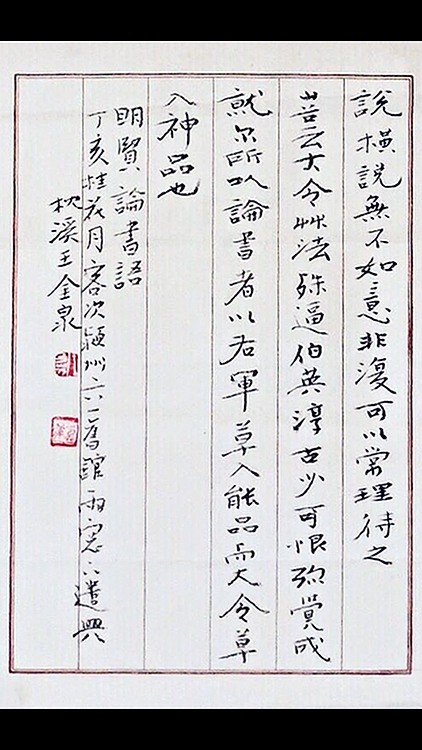 說橫說無不如意非復可以常理待之
昔云大令艸法殊逼伯英淳古少可恨弥覺成
就尔所以論書者以右軍草入能品而大令草
入神品也
明賢論書語
丁亥桂花月客次潁州六一舊館雨窓遣興
枕溪王金泉